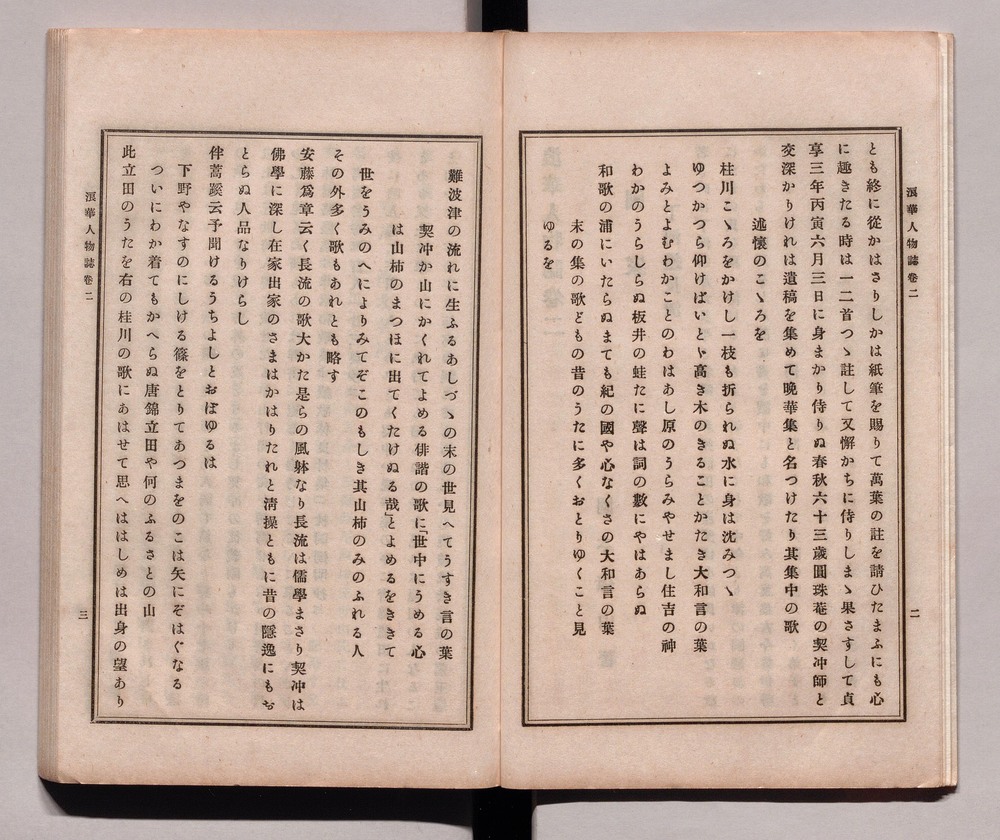 浪華人物誌卷二
二
とも終に從かはさりしかは紙筆を賜りて萬葉の註を請ひたまふにも心
に趣きたる時は一二首つゝ註して又懈かちに侍りしまゝ果さすして貞
享三年丙寅六月三日に身まかり侍りぬ春秋六十三歲圓珠菴の契冲師と
交深かりけれは遺稿を集めて晩華集と名つけたり其集中の歌
述懷のこゝろを
桂川こゝろをかけし一枝も折られぬ水に身は沈みつゝ
ゆつかつら仰けばいとゝ高き木のきることかたき大和言の葉
よみとよむわかことのわはあし原のうらみやせまし住吉の神
わかのうらしらぬ板井の蛙たに聲は詞の數にやはあらぬ
和歌の浦にいたらぬまても紀の國や心なくさの大和言の葉
末の集の歌どもの昔のうたに多くおとりゆくこと見
ゆるを
難波津の流れに生ふるあしづゝの末の世見へてうすき言の葉
契冲か山にかくれてよめる俳諧の歌に「世中にうめる心
は山柿のまつほに出てくたけぬる哉」とよめるをききて
世をうみのへによりみてぞこのもしき其山柿のみのふれる人
その外多く歌もあれとも略す
安藤爲章云く長流の歌大かた是らの風躰なり長流は儒學まさり契冲は
佛學に深し在家出家のさまはかはりたれと淸操ともに昔の隱逸にもお
とらぬ人品なりけらし
伴蒿蹊云予聞けるうちよしとおぼゆるは
下野やなすのにしける篠をとりてあつまをのこは矢にぞはぐなる
ついにわか着てもかへらぬ唐錦立田や何のふるさとの山
此立田のうたを右の桂川の歌にあはせて思へははしめは出身の望あり
浪華人物誌卷二
三